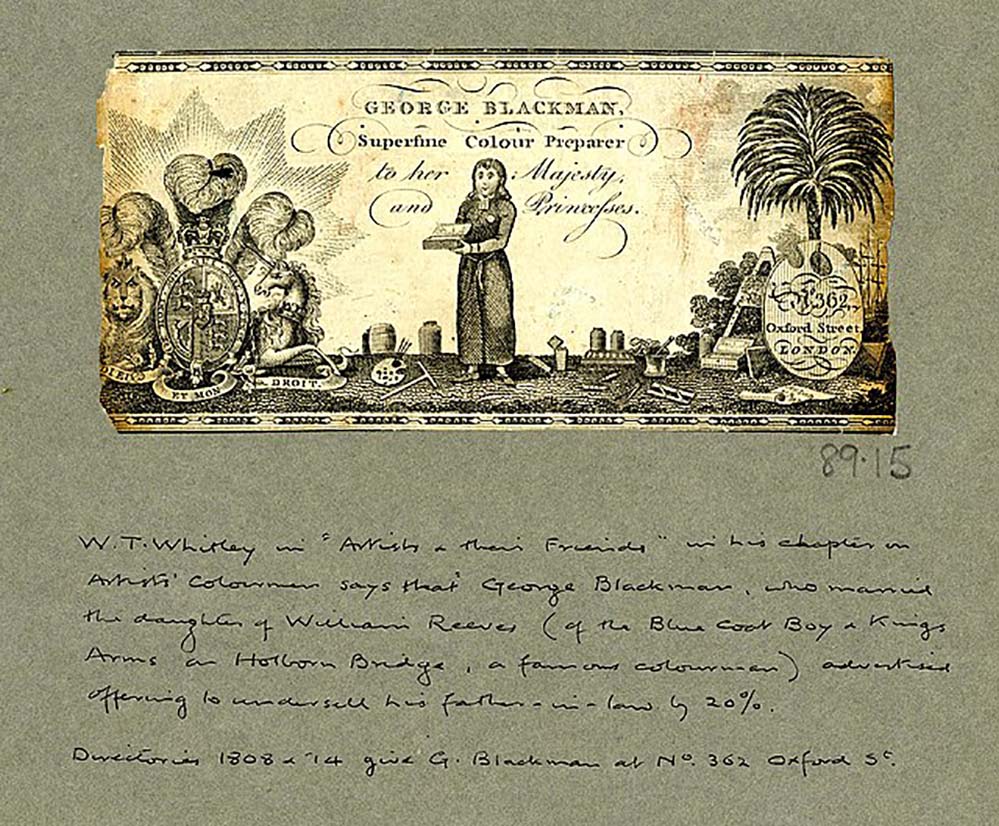 GEORGE BLACKMAN,
Superfine Colour Preparer
to her Majesty,
and Princesses.
DIEU
ET MON
DROIT.
No. 362,
Oxford Street,
LONDON.
89.15
W.T. Whitley in "Artists & their Friends" in his chapter on
Artists' Colourmen says that George Blackman, who married
the daughter of William Reeves (of the Blue Coat Boy & Kings
Arms on Holborn Bridge, a famous colourman) advertised
offering to undersell his father-in-law by 20%.
Directories 1808 & '14 give G. Blackman at No. 362 Oxford St.